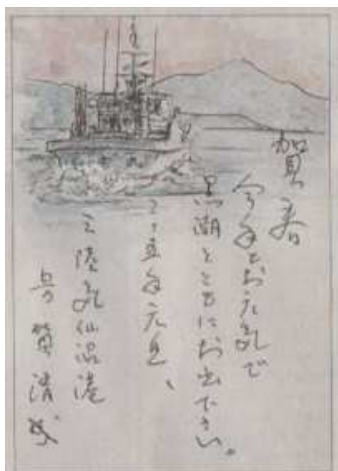 賀春
今年もお元気で
黒潮とともにお出下さい。
五年元旦、
三陸気仙沼港
賀清